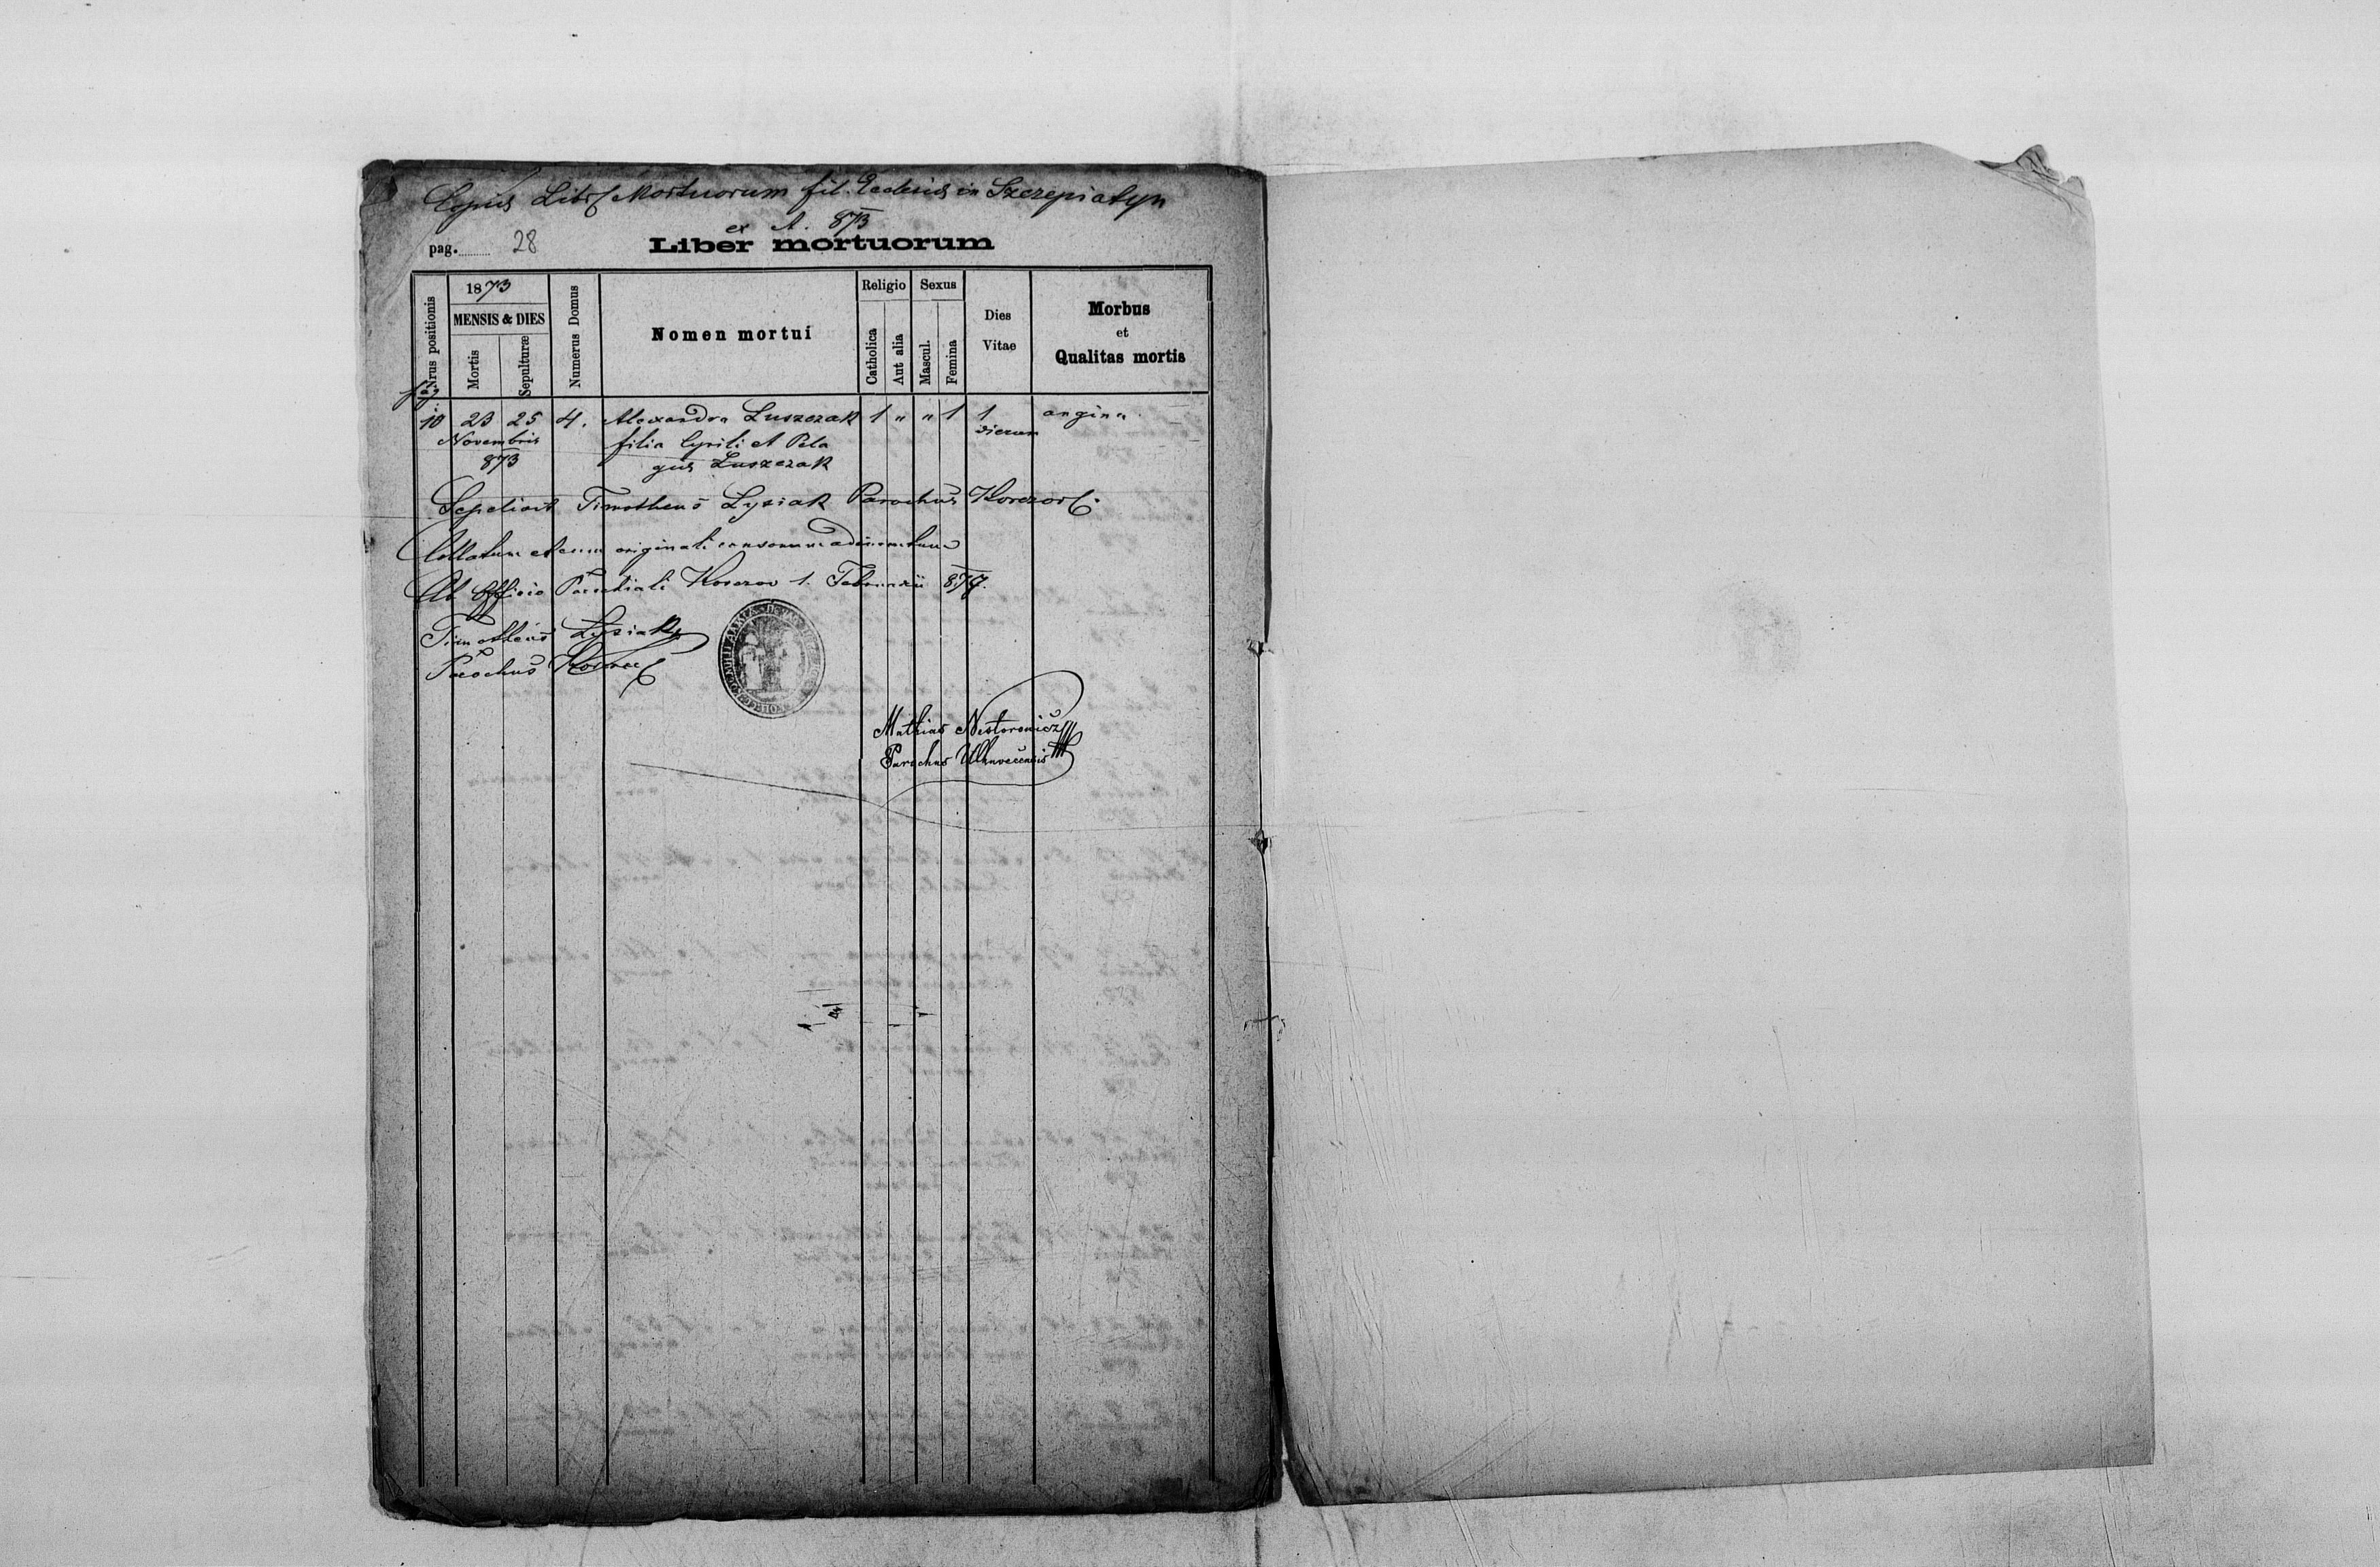 Copia Libri Mortuorum fil. Ecclesiae in Szczepiatyn
ex A. 873
pag. 28
Liber mortuorum
Nrus positionis
1873
MENSIS & DIES
Mortis
Sepulturæ
Numerus Domus
Nomen mortui
Religio
Catholica
Aut alia
Sexus
Mascul.
Femina
Dies
Vitae
Morbus
et
Qualitas mortis
10 23 25 4. Alexandra Luszczak 1 " " 1 1 angina
Novembris filia Cyrili et Pela dierum
873 giae Luszczak
Sepelivit Timotheus Lysiak Parochus Korczov
Collatum et cum originali consonum adinventum
Ab Officio Parochiali Korczov 1. Februarii 874.
Timotheus Lysiak
Parochus
Mathias Nestorowicz
Parochus Uhnovecensis